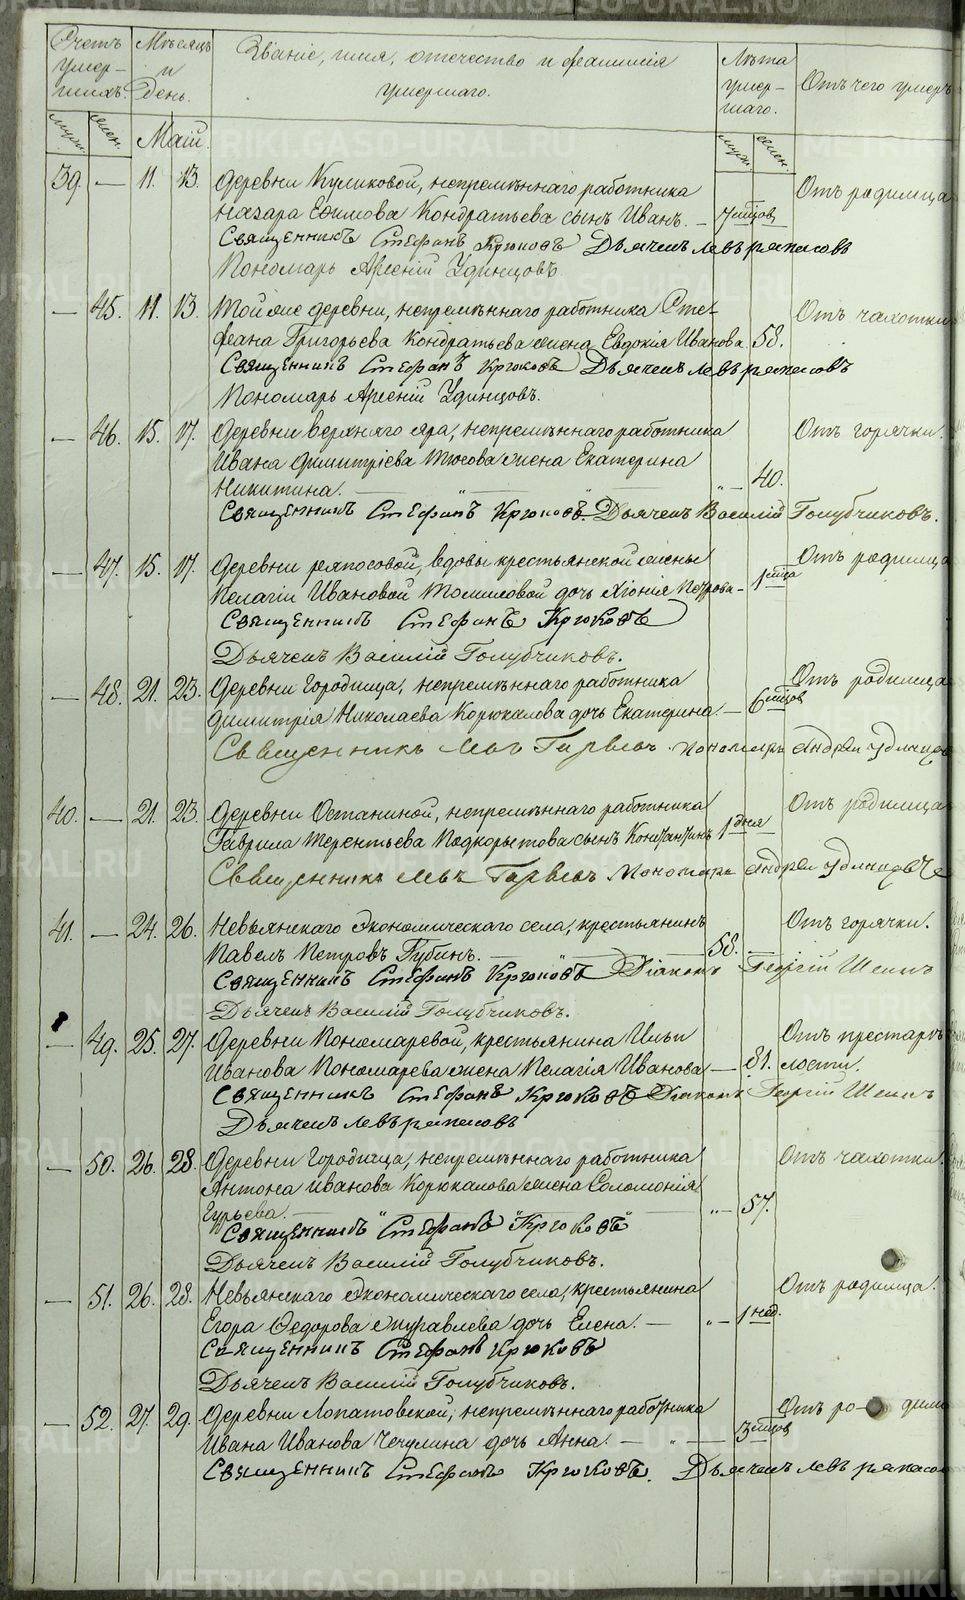 Счетъ умер-шихъ. Мѣсяцъ и День. Званіе, имя, отчество и фамилія умершаго. Лѣта умер-шаго. Отъ чего умеръ
муж. жен. Май. муж. жен.
39. — 11. 13. Деревни Куликовой, непремѣннаго работника Отъ родимца
Назара Ефимова Кондратьева сынъ Иванъ. — 7 мцовъ
Священникъ Стефанъ Крюковъ Дьячекъ Левъ Ряпасовъ
Пономарь Арсеній Удинцовъ.
— 45. 11. 13. Той же деревни, непремѣннаго работника Сте- Отъ чахотки
фана Григорьева Кондратьева жена Евдокія Иванова. 58.
Священникъ Стефанъ Крюковъ Дьячекъ Левъ Ряпасовъ
Пономарь Арсеній Удинцовъ.
— 46. 15. 17. Деревни верхняго яра, непремѣннаго работника Отъ горячки.
Ивана Димитріева Тюсова жена Екатерина
Никитина. — „ — „ — 40.
Священникъ Стефанъ Крюковъ. Дьячекъ Василій Голубчиковъ.
— 47. 15. 17. Деревни ряпосовой, вдовы крестьянской жены Отъ родимца
Пелагіи Ивановой Томиловой дочь Хіонія Петрова — 1 мца
Священникъ Стефанъ Крюковъ
Дьячекъ Василій Голубчиковъ.
— 48. 21. 23. Деревни Городища, непремѣннаго работника Отъ родимца
Димитрія Николаева Корюкалова дочь Екатерина. — 6 мцов
Священникъ пономарь Андрей Удинцов
40. — 21. 23. Деревни Останиной, непремѣннаго работника Отъ родимца
Гаврила Терентьева Подкорытова сынъ Констант҃инъ 1 дня
Священникъ Пономарь Андрей Удинцовъ
41. — 24. 26. Невьянскаго Экономическаго села, крестьянинъ Отъ горячки.
Павелъ Петровъ Губинъ. — „ — 58. —
Священникъ Стефанъ Крюковъ Діаконъ Георгій
Дьячекъ Василій Голубчиковъ.
— 49. 25. 27. Деревни Пономаревой, крестьянина Ильи Отъ престарѣ-
Иванова Пономарева жена Пелагія Иванова — 81. лости.
Священникъ Стефанъ Крюковъ Діаконъ Георгій
Дьячекъ Левъ Ряпасовъ
— 50. 26. 28. Деревни Городища, непремѣннаго работника Отъ чахотки.
Антона Иванова Корюкалова жена Соломонія
Гурьева. — „ — „ — „ — 57.
Священникъ Стефанъ Крюковъ
Дьячекъ Василій Голубчиковъ.
— 51. 26. 28. Невьянскаго Экономическаго села, крестьянина Отъ родимца.
Егора Федорова Журавлева дочь Елена. — „ — 1 нед.
Священникъ Стефанъ Крюковъ
Дьячекъ Василій Голубчиковъ.
— 52. 27. 29. Деревни Лопатовской, непремѣннаго работника Отъ ро- дим
Ивана Иванова Чечулина дочь Анна. — „ — 3 мцов
Священникъ Стефанъ Крюковъ. Дьячекъ Левъ Ряпасов
METRIKI.GASO-URAL.RU